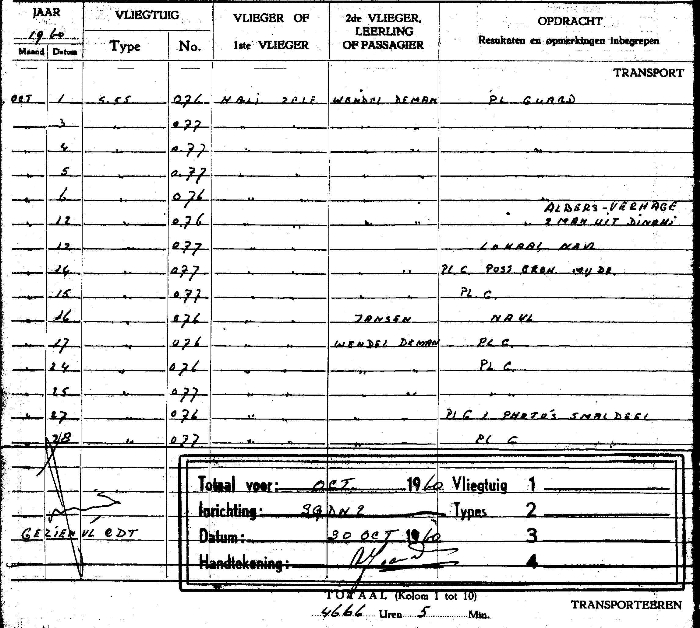 JAAR VLIEGTUIG VLIEGER OF 2de VLIEGER, OPDRACHT
1960 LEERLING
Maand Datum Type No. 1ste VLIEGER OF PASSAGIER Resultaten en opmerkingen inbegrepen
TRANSPORT
OCT 1 S.55 076 WENDEL DEMAN PL GUARD
" 3 " 077 " " " " "
" 4 " 077 " " " " "
" 5 " 077 " " " " "
" 6 " 076 " " " "
ALBERS-VERHAGE
" 12 " 076 " " " " 2 MAN UIT
" 13 " 077 " " " " LOKAAL NAV
" 14 " 077 " " " " PL G. POST
" 15 " 077 " " PL G.
" 16 " 076 " " JANSEN NAVL
" 17 " 076 " " WENDEL DEMAN PL G
" 24 " 076 " " " " PL G
" 25 " 077 " " " " "
" 27 " 076 " " " " PL G / PHOTO'S SMALDEEL
" 28 " 077 " " " " PL G
Totaal voor: OCT. 1960 Vliegtuig 1
Inrichting: SQDN 2 Types 2
GEZIEN VL CDT
Datum: 30 OCT 1960 3
Handtekening: 4
TOTAAL (Kolom 1 tot 10)
4666 Uren 5 Min.
TRANSPORTEEREN